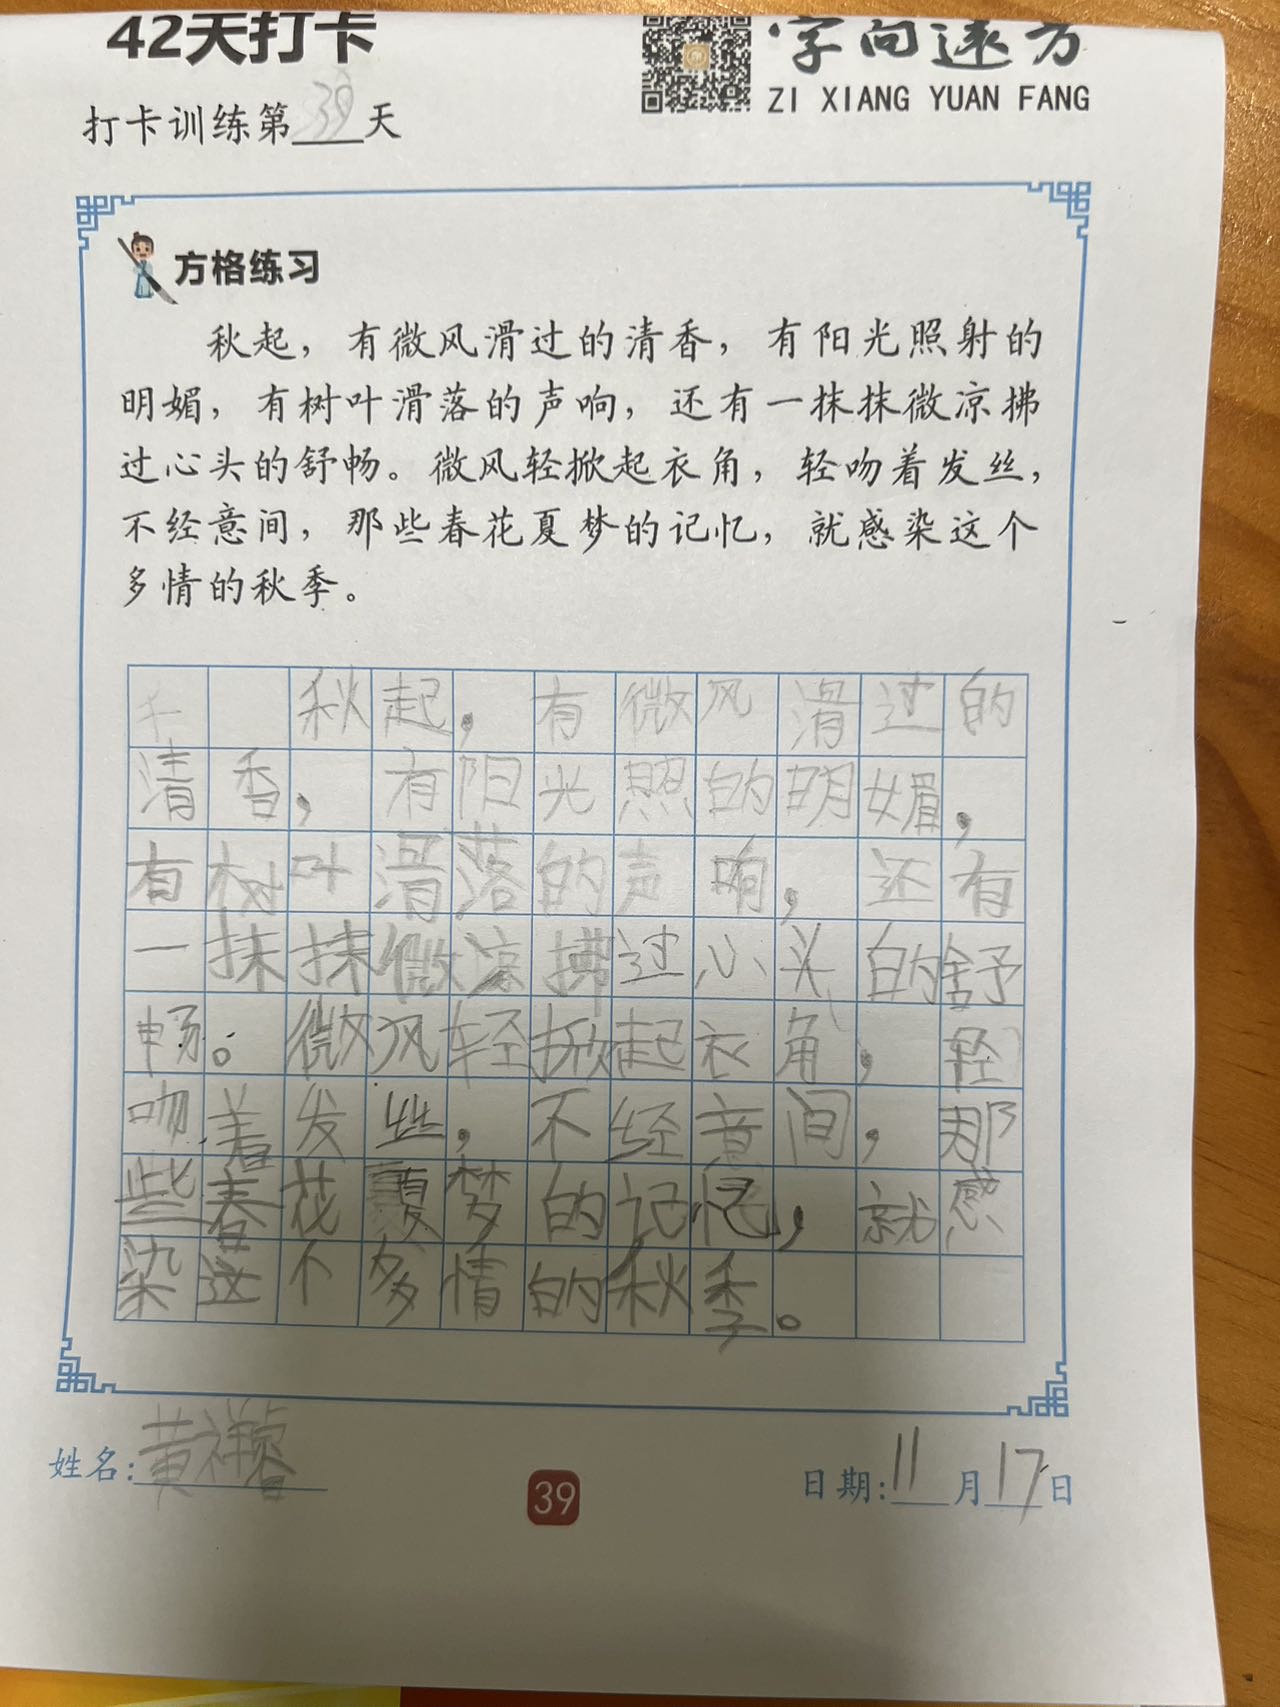 42天打卡
字向远方
ZI XIANG YUAN FANG
打卡训练第39天
方格练习
秋起，有微风滑过的清香，有阳光照射的
明媚，有树叶滑落的声响，还有一抹抹微凉拂
过心头的舒畅。微风轻掀起衣角，轻吻着发丝，
不经意间，那些春花夏梦的记忆，就感染这个
多情的秋季。
秋起，有微风滑过的
清香，有阳光照的明媚，
有树叶滑落的声响，还有
一抹抹微凉拂过心头的舒
畅。微风轻掀起衣角，轻
吻着发丝，不经意间，那
些春花夏梦的记忆，就感
染这个多情的秋季。
姓名：黄祥
39
日期：11月17日